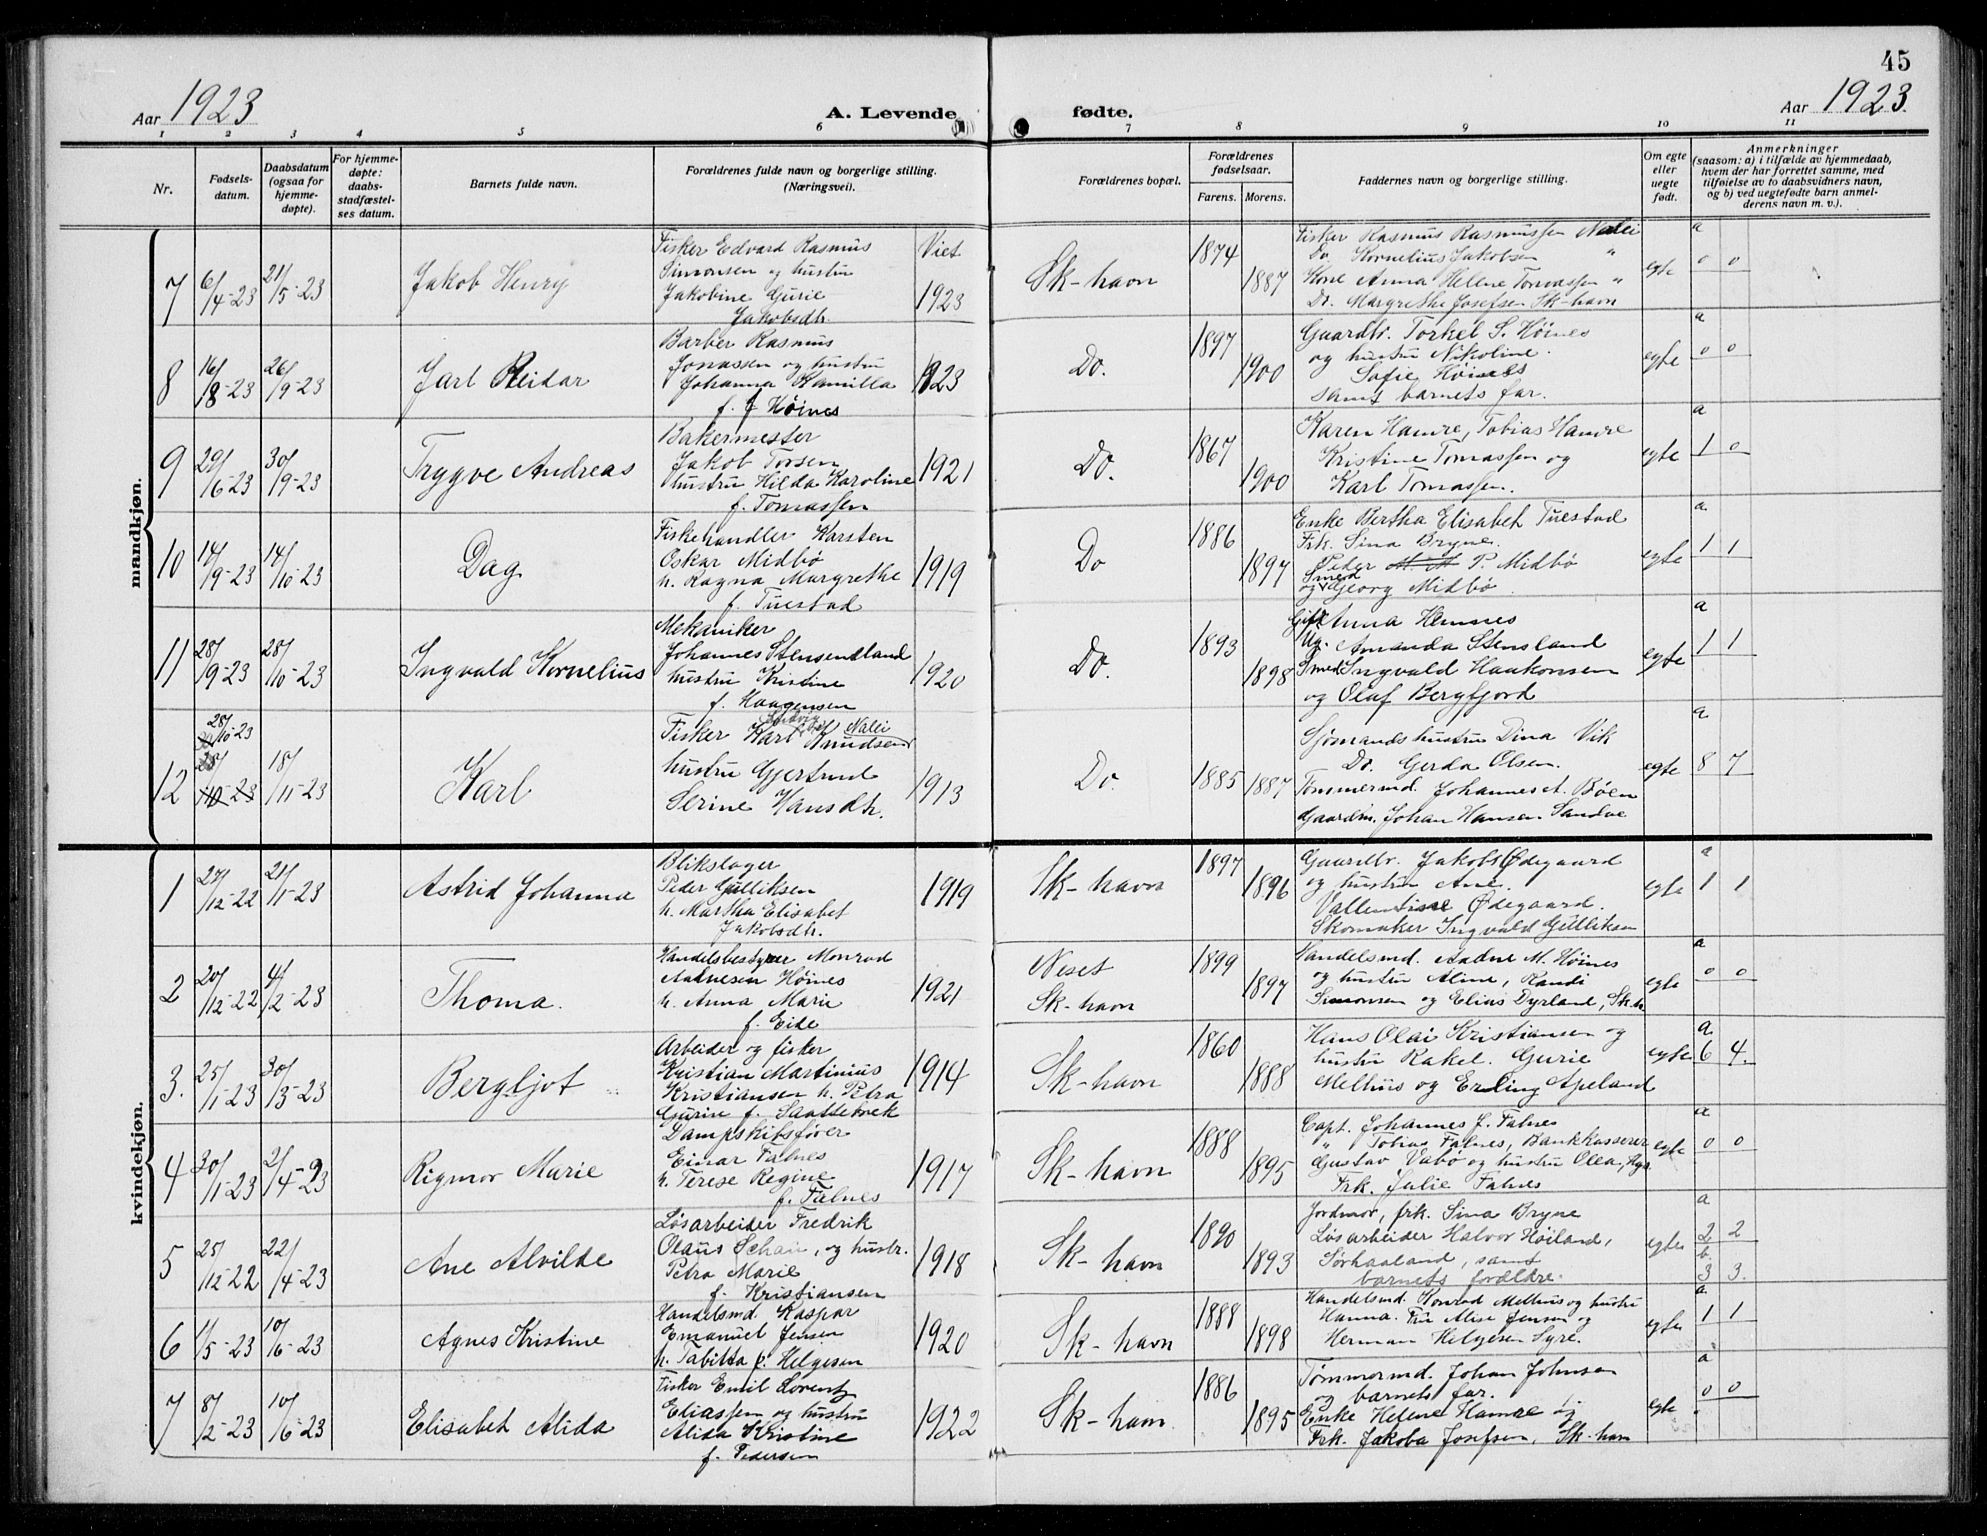 45
Aar 1923
A. Levende fødte.
Aar 1923.
1 2 3 4 5 6 7 8 9 10 11
Nr.
Fødsels-
datum.
Daabsdatum
(ogsaa for
hjemme-
døpte).
For hjemme-
døpte:
daabs-
stadfæstel-
ses datum.
Barnets fulde navn.
Forældrenes fulde navn og borgerlige stilling.
(Næringsvei).
Forældrenes bopæl.
Forældrenes
fødselsaar.
Farens. Morens.
Faddernes navn og borgerlige stilling.
Om egte
eller
uegte
født.
Anmerkninger
(saasom: a) i tilfælde av hjemmedaab,
hvem der har forrettet samme, med
tilføielse av to daabsvidners navn,
og b) ved uegtefødte barn anmel-
derens navn m. v.).
mandkjøn.
7
6/4-23
21/5-23
Jakob Henry
Fisker Edvard Rasmus
Simonsen og hustru
Jakobine Gurie
Jakobsdtr.
Viet
1923
Sk-havn
1874
1887
Fisker Rasmus Rasmussen Nalei
Do. Kornelius Jakobsen "
Kone Anna Helene Tomassen "
Do. Margrethe Josefsen Sk-havn
egte
a
0 0
8
16/8-23
26/9-23
Jarl Reidar
Barber Rasmus
Jonassen og hustru
Johanna Kamilla
f. Høines
1923
Do.
1897
1900
Gaardbr. Torkel S. Høines
og hustru Nikoline.
Sofie Høines
samt barnets far.
egte
a
0 0
9
29/6-23
30/9-23
Trygve Andreas
Bakermester
Jakob Torsen
hustru Hilda Karoline
f. Tomassen
1921
Do.
1867
1900
Karen Hamre, Tobias Hamre
Kristine Tomassen og
Karl Tomassen.
egte
a
1 0
10
14/9-23
14/10-23
Dag
Fiskehandler Karsten
Oskar Midbø
h. Ragna Margrethe
f. Tuestad
1919
Do
1886
1897
Enke Bertha Elisabet Tuestad
Frk. Sina Bryne.
Peder M. M P. Midbø
Smed
og Georg Midbø
egte
a
1 1
11
28/9-23
28/10-23
Ingvald Kornelius
Mekaniker
Johannes Stensendland
hustru Kristine
f. Haagensen
1920
Do.
1893
1898
Gift Anna Hemnes
Ug. Amanda Stensland
Smed Ingvald Haakonsen
og Olaf Bergfjord
egte
a
1 1
12
28/10-23
18/11-23
Karl
Fisker Karl Knudsen Nalei
hustru Gjertrud
Serine Hansdtr.
1913
Do.
1885
1887
Sjømandshustru Dina Vik
Do. Gerda Olsen.
Tømmermd. Johannes A. Bøen
Gaardm. Johan Hansen Sandve
egte
a
8 7
kvindekjøn.
1
27/12-22
21/1-23
Astrid Johanna
Blikslager
Peder Gulliksen
h. Martha Elisabet
Jakobsdtr.
1919
Sk-havn
1897
1896
Gaardbr. Jakob Ødegaard
og hustru Ane.
Vallentine Ødegaard.
Skomaker Ingvald Gulliksen
egte
a
1 1
2
20/12-22
4/2-23
Thoma.
Handelsbestyrer Monrad
Aadnesen Høines
h. Anna Marie
f. Eide
1921
Neset
Sk-havn
1899
1897
Handelsmd. Aadne M. Høines
og hustru Aline, Randi
Simonsen og Elias Dyrland, Sk.h.
egte
a
0 0
3.
25/1-23
30/3-23
Bergljot
Arbeider og fisker
Kristian Martinius
Kristiansen h. Petra
Gurine f. Saaldebæk
1914
Sk-havn
1860
1888
Hans Olai Kristiansen og
hustru Rakel. Gurie
Melhus og Erling Apeland
egte
a
6 4.
4
30/1-23
2/4-23
Rigmor Marie
Dampskibsfører
Einar Falnes
h. Terese Regine
f. Falnes
1917
Sk-havn
1888
1895
Capt. Johannes J. Falnes
" Tobias Falnes, Bankkasserer
Gustav Vabø og hustru Olea,
Frk. Julie Falnes
egte
a
0 0
5
25/12-22
22/4-23
Ane Alvilde
Løsarbeider Fredrik
Olaus Schau, og hustr.
Petra Marie
f. Kristiansen
1918
Sk-havn
1890
1893
Jordmor, frk. Sina Bryne
Løsarbeider Halvor Høiland,
Sørhaaland, samt
barnets forældre.
egte
a
2 2
b.
3 3.
6
1/5-23
10/6-23
Agnes Kristine
Handelsmd. Kaspar
Emanuel Jensen
h. Tabitta f. Helgesen
1920
Sk-havn
1888
1898
Handelsmd. Konrad Melhus og hustru
Hanna. Fru Alise Jensen og
Herman Helgesen Syre.
egte
a
1 1
7
8/2-23
10/6-23
Elisabet Alida
Fisker Emil Lorentz
Eliassen og hustru
Alida Kristine
f. Pedersen
1922
Sk-havn
1886
1895
Tømmermd. Johan Johnsen
og barnets far.
Enke Helene Hamre og
Frk. Jakoba Josefsen, Sk-havn
egte
a
0 0